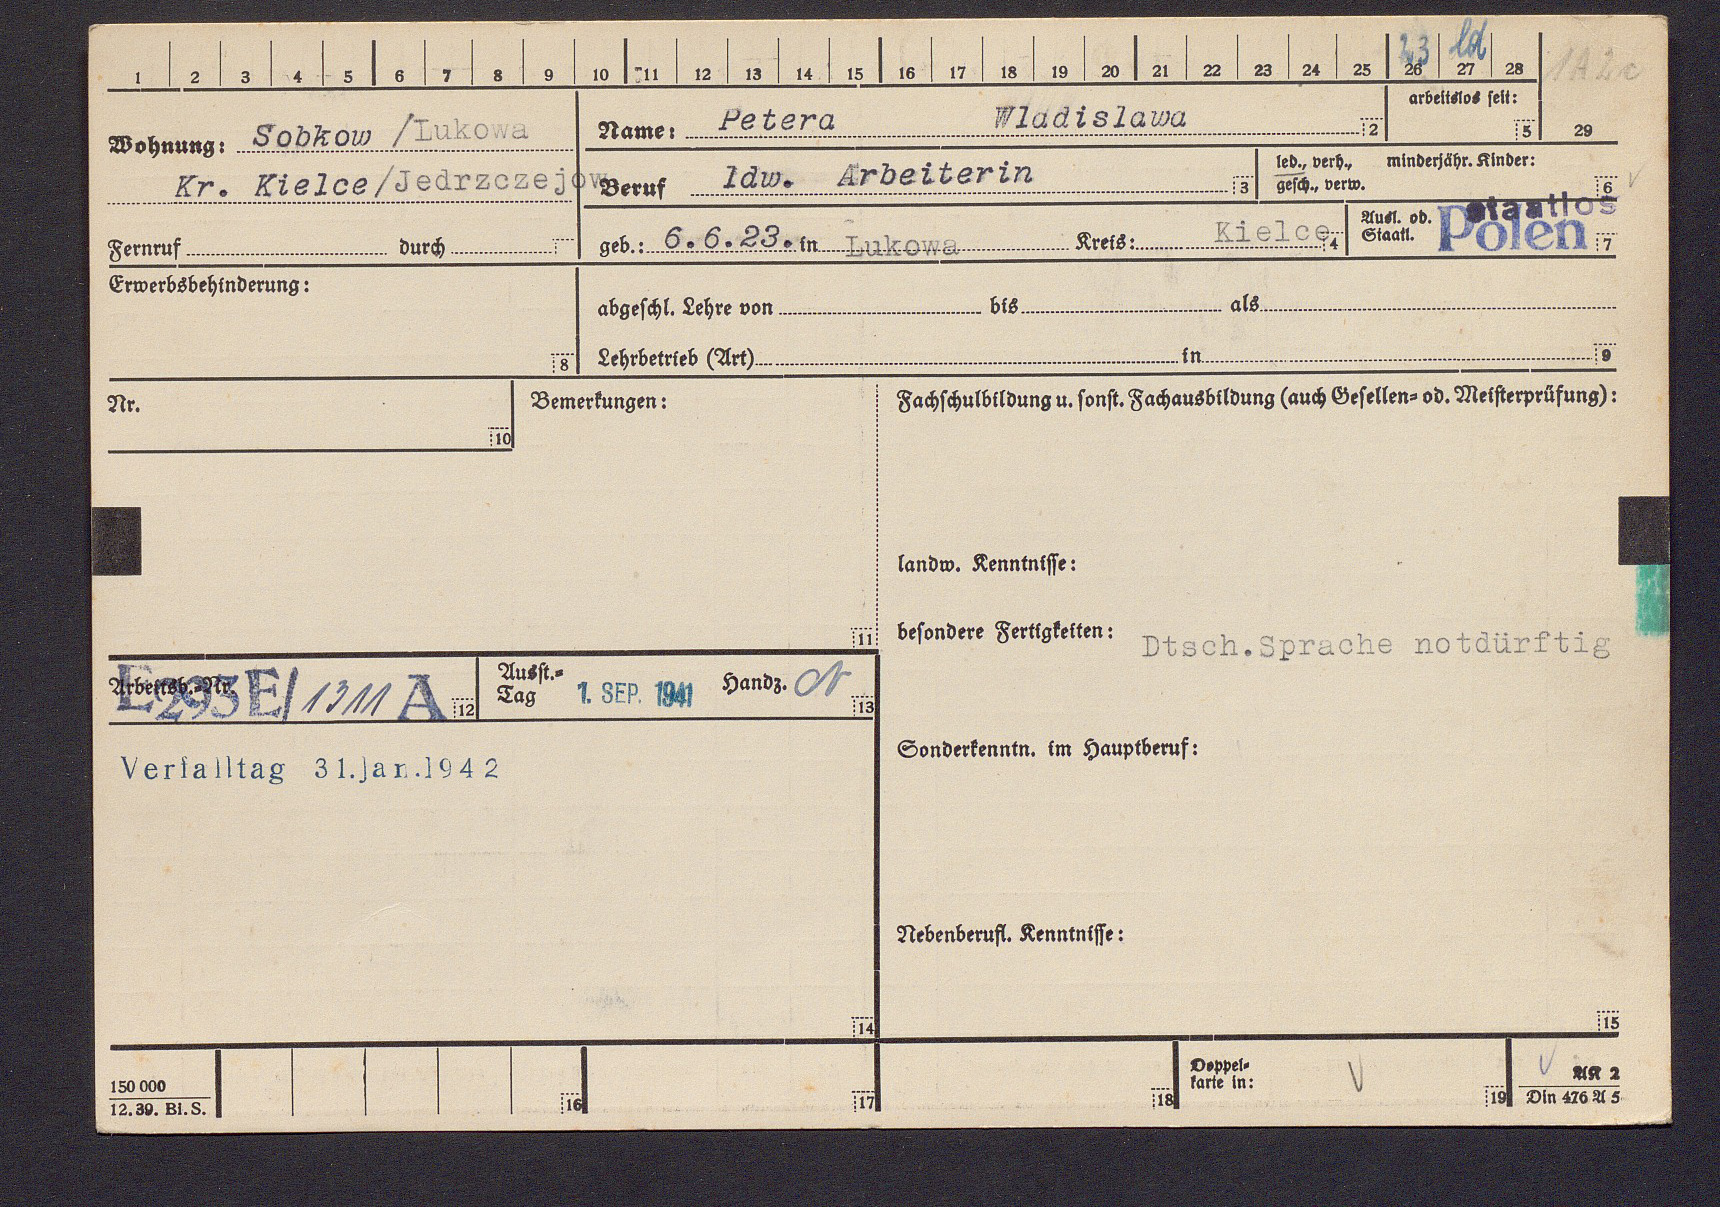 1 2 3 4 5 6 7 8 9 10 11 12 13 14 15 16 17 18 19 20 21 22 23 24 25 26 27 28
23 ld
arbeitslos seit:
5
29
Wohnung: Sobkow /Lukowa
Kr. Kielce/Jedrzczejow
Fernruf durch
Name: Petera Wladislawa 2
Beruf ldw. Arbeiterin 3
led., verh., minderjähr. Kinder:
gesch., verw. 6
geb.: 6.6.23. in Lukowa Kreis: Kielce 4
Ausl. od.
Staatl.
staatlos
Polen 7
Erwerbsbehinderung:
8
abgeschl. Lehre von bis als
Lehrbetrieb (Art) in 9
Nr.
10
Bemerkungen:
11
Fachschulbildung u. sonst. Fachausbildung (auch Gesellen= od. Meisterprüfung):
landw. Kenntnisse:
besondere Fertigkeiten: Dtsch.Sprache notdürftig
Sonderkenntn. im Hauptberuf:
Nebenberufl. Kenntnisse:
15
Arbeitsb.=Nr.
E293E/1311 A 12
Ausst.=
Tag 1. SEP. 1941 Handz. 13
Verfalltag 31.Jan.1942
14
150 000
12.39. Bi.S.
16
17
18
Doppel=
karte in:
19
AK 2
Din 476 A 5